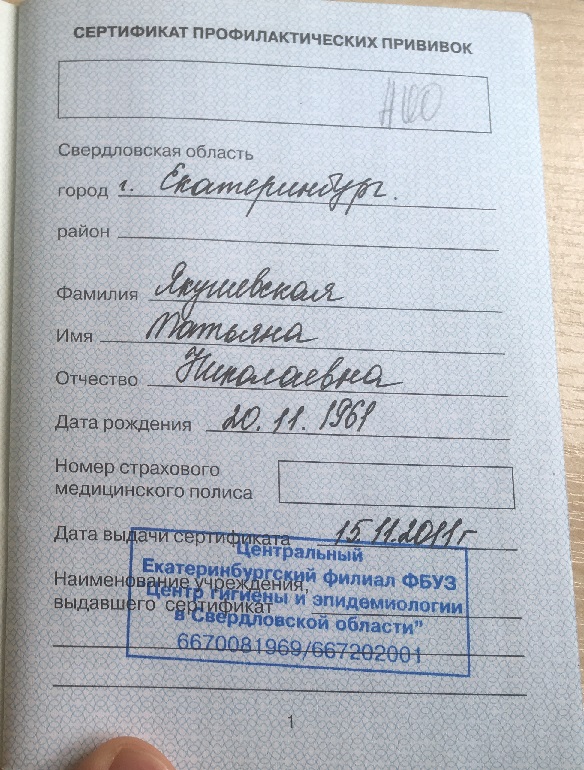 СЕРТИФИКАТ ПРОФИЛАКТИЧЕСКИХ ПРИВИВОК
Свердловская область
город г. Екатеринбург.
район
Фамилия Якушевская
Имя Татьяна
Отчество Николаевна
Дата рождения 20.11.1961
Номер страхового
медицинского полиса
Дата выдачи сертификата 15.11.2011г
Наименование учреждения,
выдавшего сертификат
Центральный
Екатеринбургский филиал ФБУЗ
"Центр гигиены и эпидемиологии
в Свердловской области"
6670081969/667202001
1